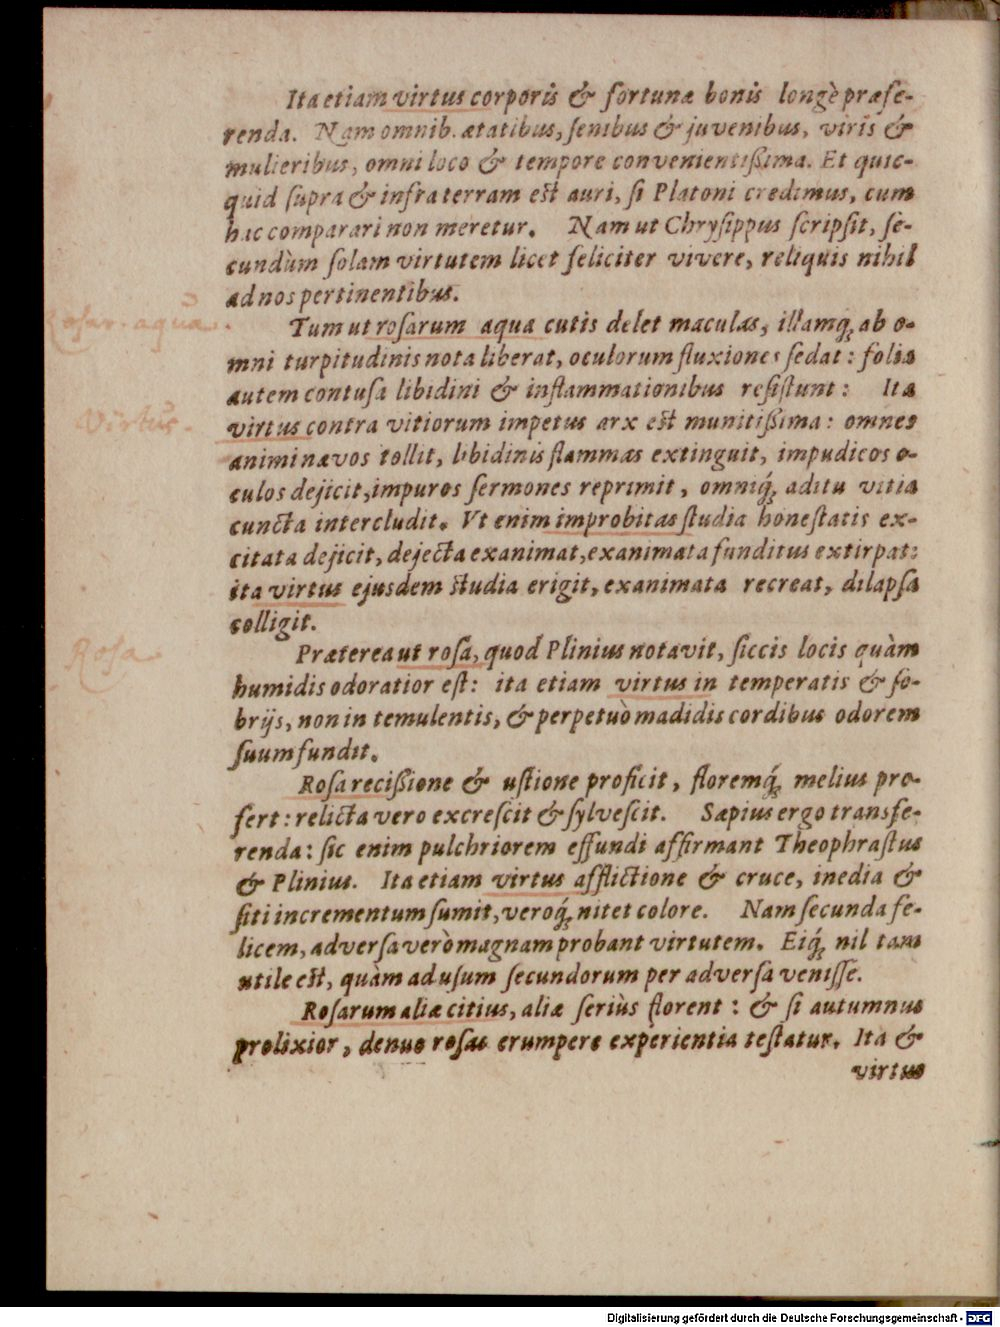 Ita etiam virtus corporis & fortunæ bonis longè præfe-
renda. Nam omnib. ætatibus, senibus & juvenibus, viris &
mulieribus, omni loco & tempore convenientißima. Et quic-
quid supra & infra terram est auri, si Platoni credimus, cum
hac comparari non meretur. Nam ut Chrysippus scripsit, se-
cundùm solam virtutem licet feliciter vivere, reliquis nihil
ad nos pertinentibus.
Rosar. aqua.
Tum ut rosarum aqua cutis delet maculas, illamq́; ab o-
mni turpitudinis nota liberat, oculorum fluxiones sedat: folia
autem contusa libidini & inflammationibus resistunt: Ita
Virtus.
virtus contra vitiorum impetus arx est munitißima: omnes
animi nævos tollit, libidinis flammas extinguit, impudicos o-
culos dejicit, impuros sermones reprimit, omniq́; aditu vitia
cuncta intercludit. Vt enim improbitas studia honestatis ex-
citata dejicit, dejecta exanimat, exanimata funditus extirpat:
ita virtus ejusdem studia erigit, exanimata recreat, dilapsa
colligit.
Rosa
Præterea ut rosa, quod Plinius notavit, siccis locis quàm
humidis odoratior est: ita etiam virtus in temperatis & so-
brijs, non in temulentis, & perpetuò madidis cordibus odorem
suum fundit.
Rosa recißione & ustione proficit, floremq́; melius pro-
fert: relicta vero excrescit & sylvescit. Sæpius ergo transfe-
renda: sic enim pulchriorem effundi affirmant Theophrastus
& Plinius. Ita etiam virtus afflictione & cruce, inedia &
siti incrementum sumit, veroq́; nitet colore. Nam secunda fe-
licem, adversa verò magnam probant virtutem. Eiq́; nil tam
utile est, quàm ad usum secundorum per adversa venisse.
Rosarum aliæ citius, aliæ seriùs florent: & si autumnus
prolixior, denuo rosas erumpere experientia testatur. Ita &
virtus
Digitalisierung gefördert durch die Deutsche Forschungsgemeinschaft - DFG